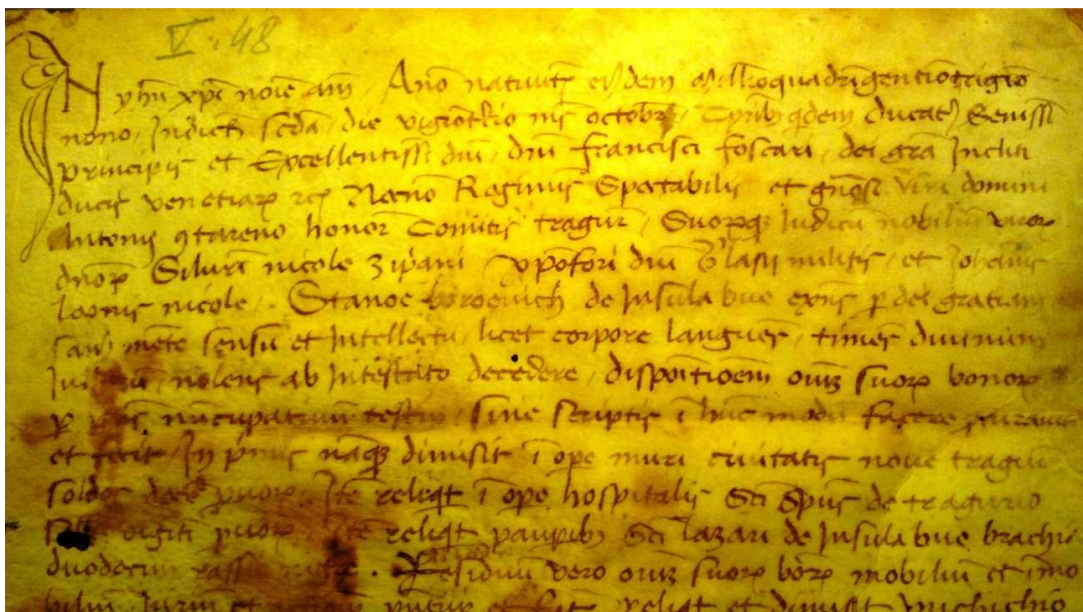 V. 48
IN yhu xpi noie am. Ano nativit eiusdem millioquadrigentiotrigio
nono, Indicti scda, die vigiotercio mis octobr, Tpribq qdem ducat Seniss
principis et Excellentissi dni, dni francisci foscari, dei gra Incliti
ducis venetiar rcs Necno Regimis Spectabilis et gnosi viri domini
Antonij 9tareno honor Comitis tragur, Suorqz Iudicu nobiliu viror
dnor Silvri nicole zipani xpofori dni blasij militis, et Iohanis
laonis nicole. Stanoe boroevich de Insula bue exns p dei gratiam
san mete sensu et Intellectu, licet corpore langues, times divinum
nolens ab Intestato decedere, dispoitioem oniz suor bonor
p nucupativu testm sine scriptis i huc modu facere
et fecit, In pmis naqz dimisit i ope muri civitatis nove tragur
soldos dece pvor, Ite reliqt i ope hospitalis Sci Spus de tragurio
vigiti pvor, ite reliqt paupibq Sci lazari de Insula bue brachia
duodecim rassie. Residuu vero oniz suor bor mobiliu et imo
biliu Iuriu et reliqt et dimisit